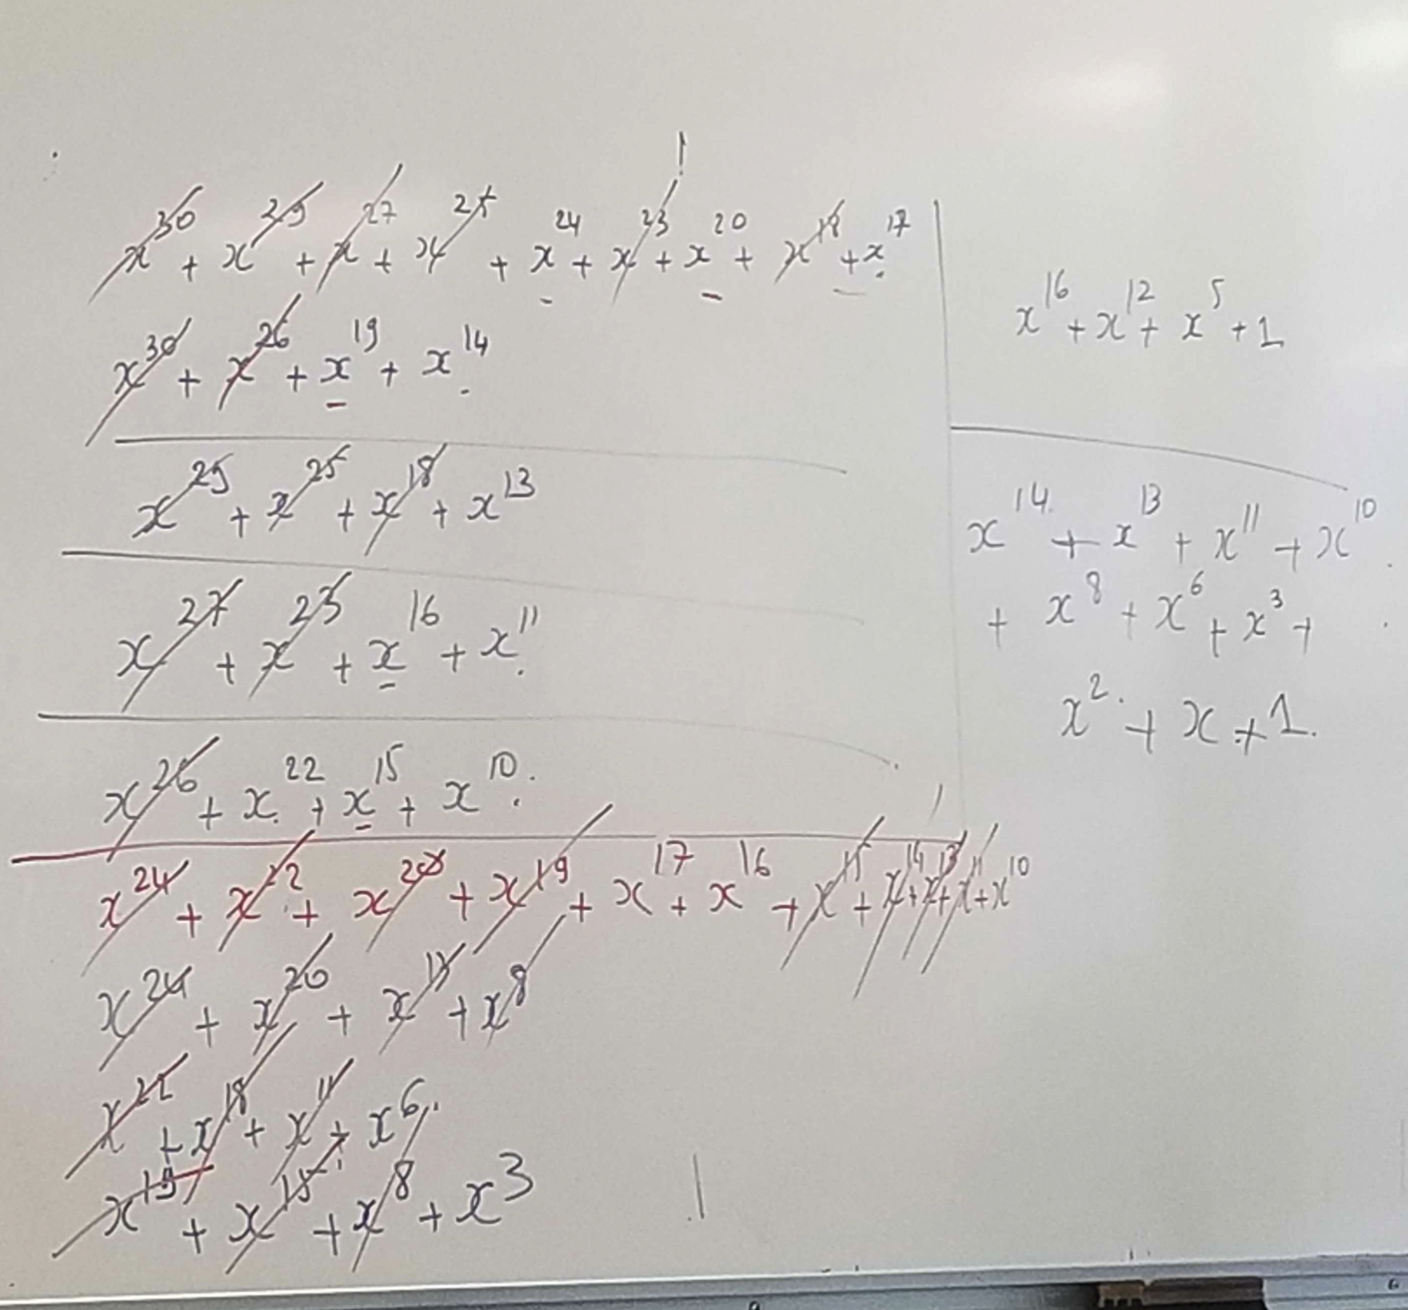 x^30 + x^29 + x^27 + x^25 + x^24 + x^23 + x^20 + x^18 + x^17
x^30 + x^26 + x^19 + x^14
x^29 + x^25 + x^18 + x^13
x^27 + x^23 + x^16 + x^11
x^26 + x^22 + x^15 + x^10
x^24 + x^22 + x^20 + x^19 + x^17 + x^16 + x^15 + x^14 + x^13 + x^11 + x^10
x^24 + x^20 + x^13 + x^8
x^22 + x^18 + x^11 + x^6
x^19 + x^15 + x^8 + x^3
x^16 + x^12 + x^5 + 1
x^14 + x^13 + x^11 + x^10
+ x^8 + x^6 + x^3 +
x^2 + x + 1